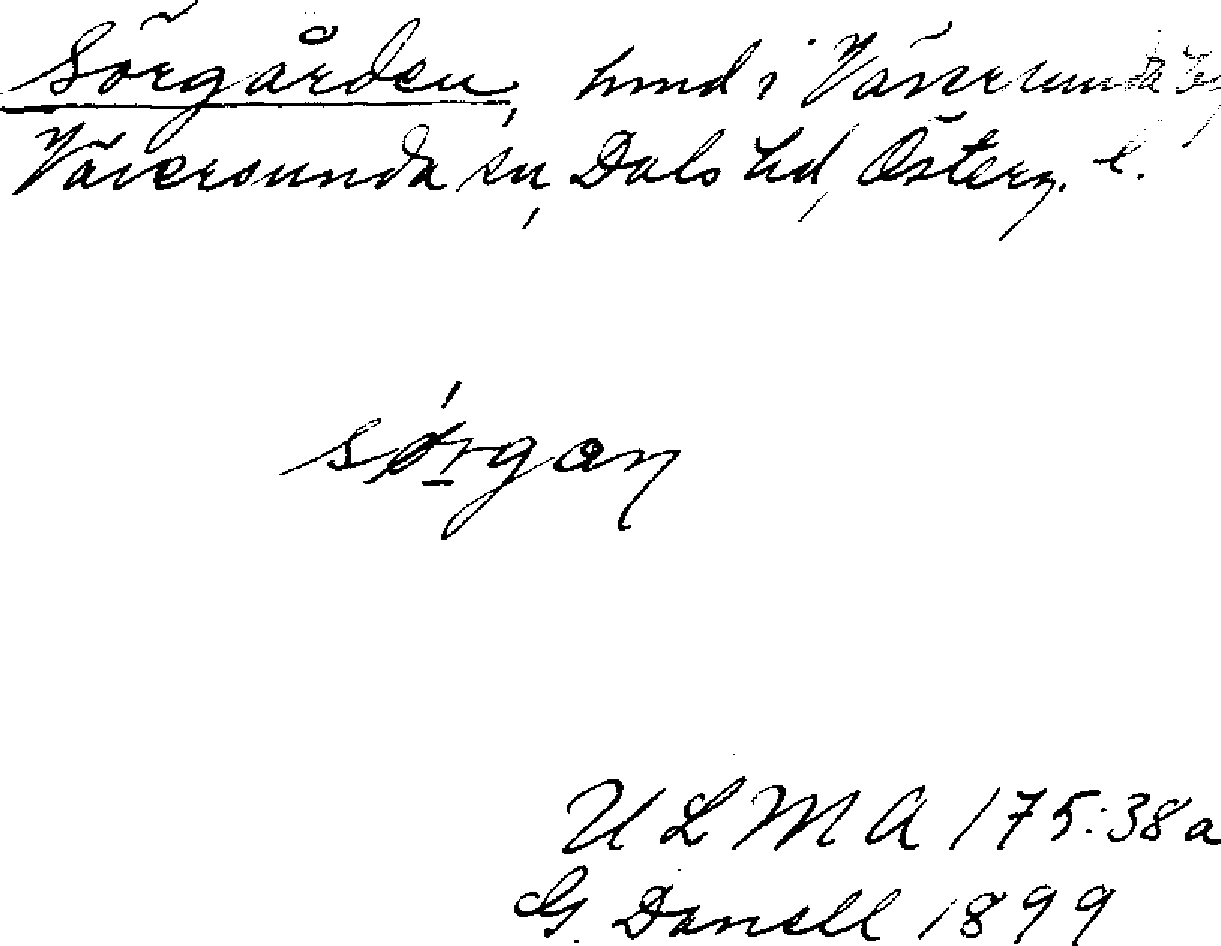 Sörgården, hmd i Väversunda by,
Väversunda sn, Dals hd, Österg. l.
sørgan
ULMA 175:38a
G. Danell 1899